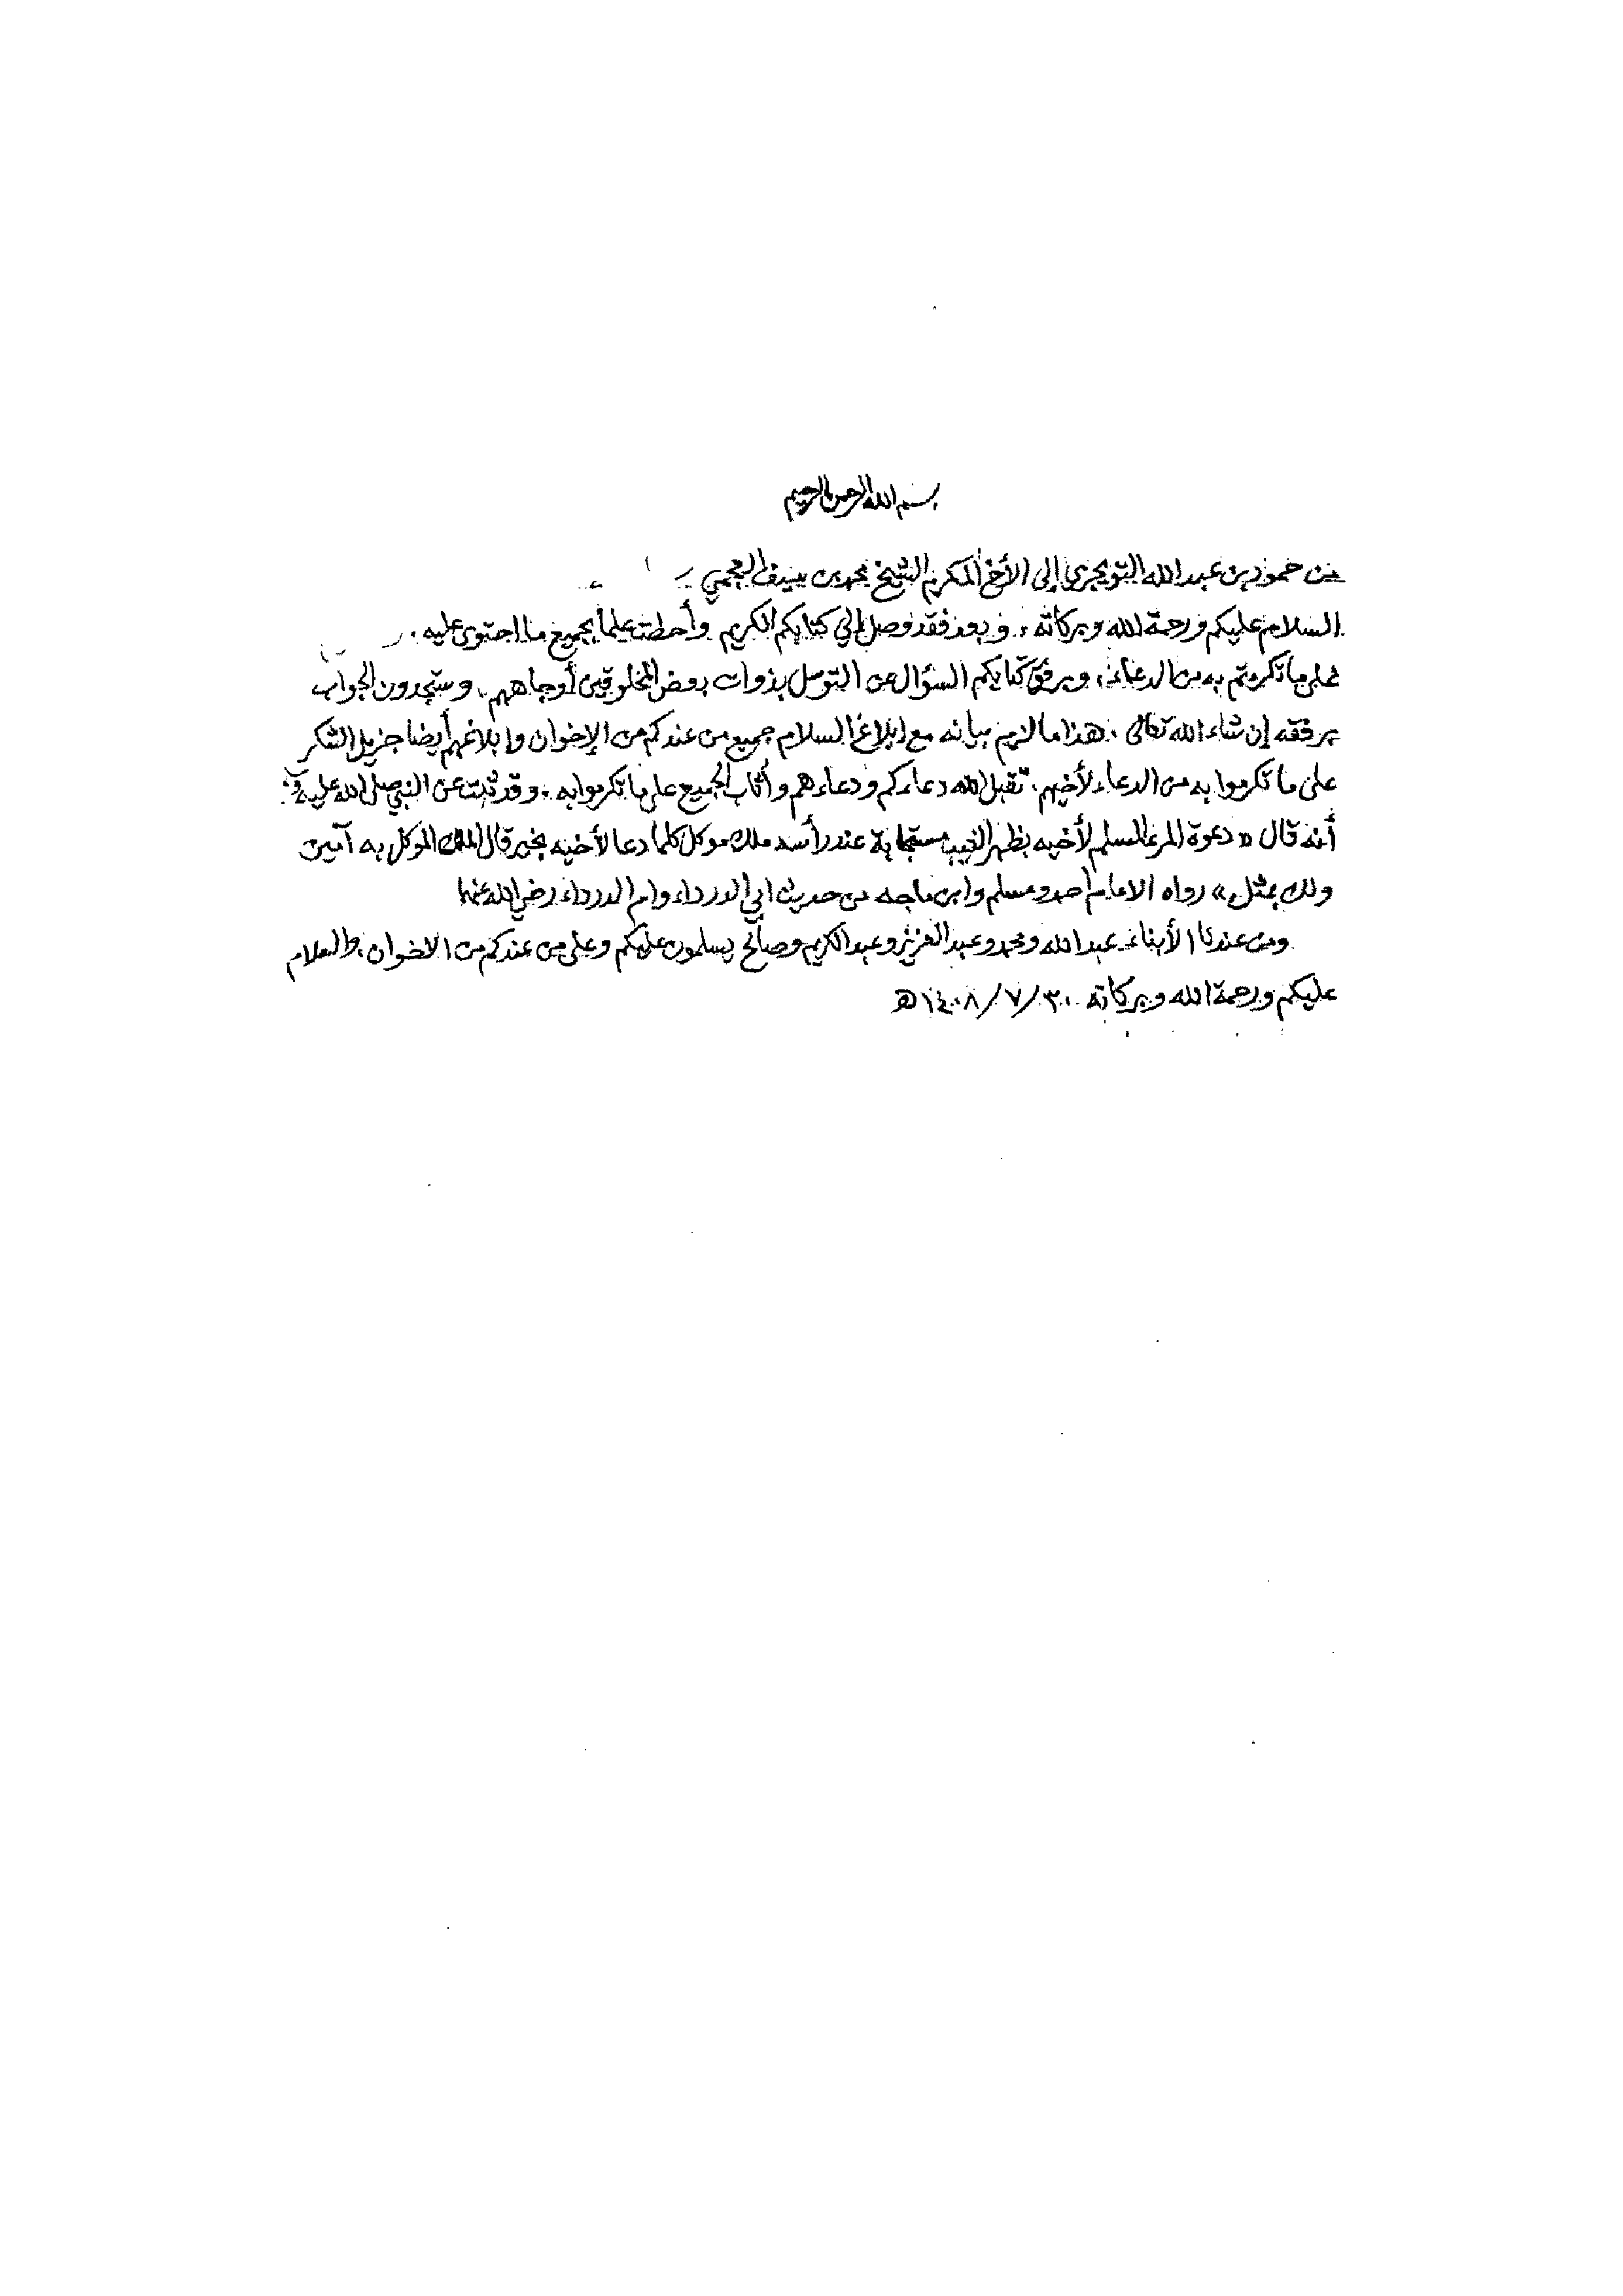 بسم الله الرحمن الرحيم
من حمود بن عبد الله التويجري إلى الأخ المكرم الشيخ محمد بن سيف العجمي
السلام عليكم ورحمة الله وبركاته، وبعد فقد وصل إلي كتابكم الكريم وأحطت علماً بجميع ما احتوى عليه.
على ما تكرمتم به من الدعاء، وبرفق كتابكم السؤال عن التوسل بذوات بعض المخلوقين أو جاههم، وستجدون الجواب
برفقه إن شاء الله تعالى. هذا ما لزم بيانه مع إبلاغ السلام جميع من عندكم من الإخوان وإبلاغهم أيضا جزيل الشكر
على ما تكرموا به من الدعاء لأخيهم، تقبل الله دعاءكم ودعاءهم وأثاب الجميع على ما تكرموا به، وقد ثبت عن النبي صلى الله عليه و
أنه قال «دعوة المرء المسلم لأخيه بظهر الغيب مستجابة عند رأسه ملك موكل كلما دعا لأخيه بخير قال الملك الموكل به آمين
ولك بمثل» رواه الامام أحمد ومسلم وابن ماجه من حديث ابي الدرداء وام الدرداء رضي الله عنهما
ومن عندنا الأبناء عبد الله ومحمد وعبد العزيز وعبد الكريم وصالح يسلمون عليكم وعلى من عندكم من الاخوان، والسلام
عليكم ورحمة الله وبركاته ٣٠/٧/١٤٠٨هـ